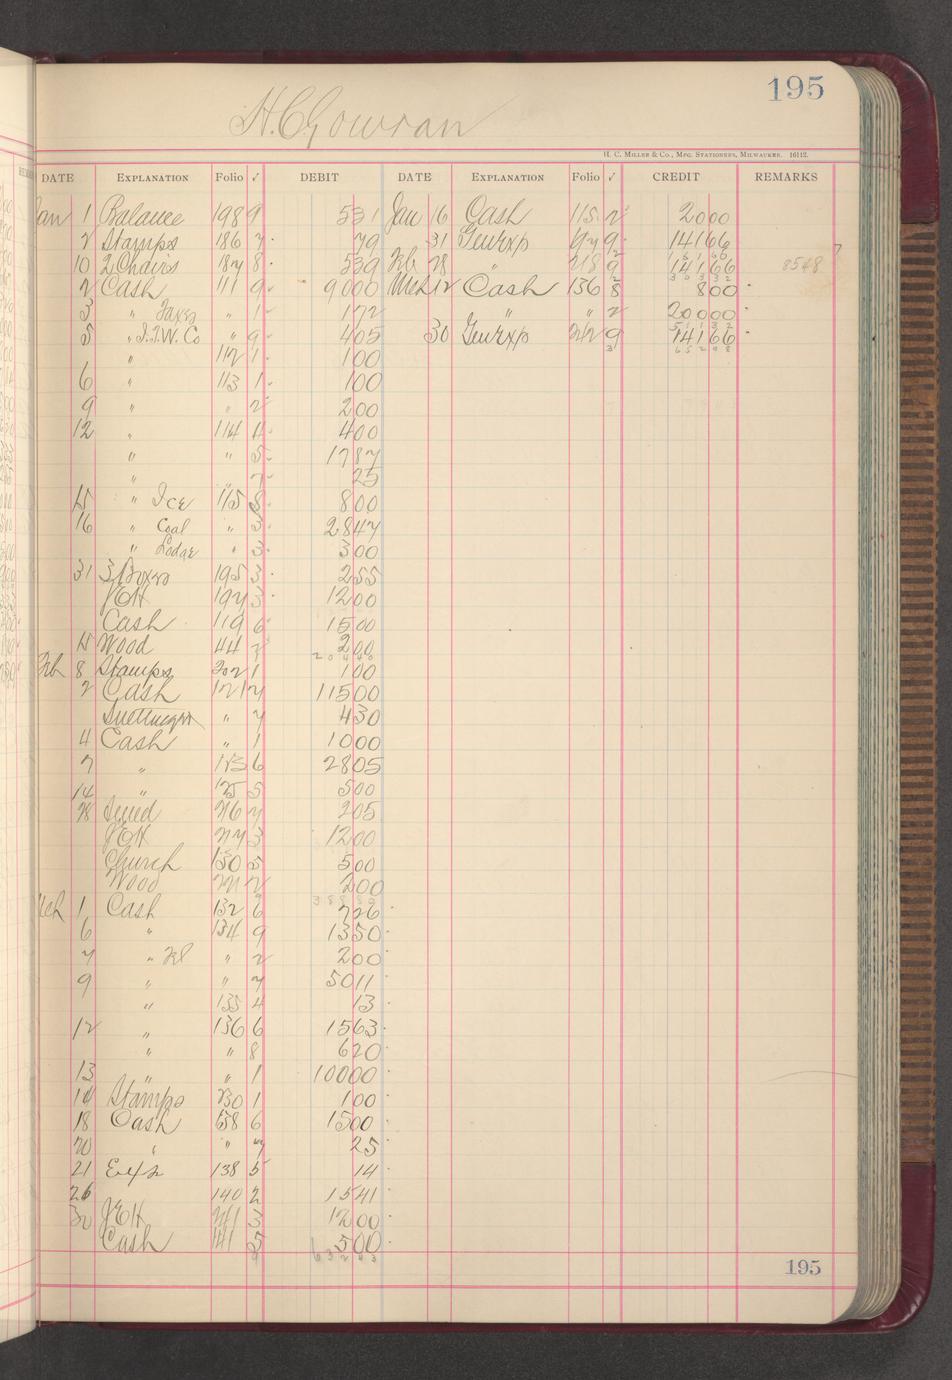 195
H. C. Gowran
H. C. Miller & Co., Mfg. Stationers, Milwaukee. 16112.
DATE EXPLANATION Folio ✓ DEBIT DATE EXPLANATION Folio ✓ CREDIT REMARKS
Jan 1 Balance 198 9 531 Jan 16 Cash 115 2 2000
2 Stamps 186 7 79 31 Genexp 9 14166
10 2 Chairs 187 8 539 Feb 28 " 218 9 14166 8548
2 Cash 111 9 9000 Mch 12 Cash 136 8 800
3 " Taxes " 1 172 " " 2 20000
5 " I.I.W. Co " 9 405 30 Genexp 242 9 14166
" 112 1 100 65298
6 " 113 1 100
9 " " 2 200
12 " 114 4 400
" " 5 1787
" " 7 25
15 " Ice 115 8 800
16 " Coal " 3 2847
" Lodge " 3 300
31 3 Boxes 195 3 255
JEH 197 3 1200
Cash 119 6 1500
15 Wood 44 2 200
Feb 8 Stamps 202 1 100
2 Cash 121 7 11500
" 7 430
4 Cash " 1 1000
7 " 123 6 2805
14 " 125 5 500
28 216 7 205
JEH 217 3 1200
Church 150 5 500
Wood 221 2 200
Mch 1 Cash 132 6 726
6 " 134 9 1350
7 " " 2 200
9 " " 7 5011
" 135 4 13
12 " 136 6 1563
" " 8 620
13 " " 1 10000
10 Stamps 230 1 100
18 Cash 138 6 1500
20 " " 7 25
21 Exp 138 5 14
26 140 2 1541
30 JEH 241 3 1200
Cash 141 5 500
63243
195